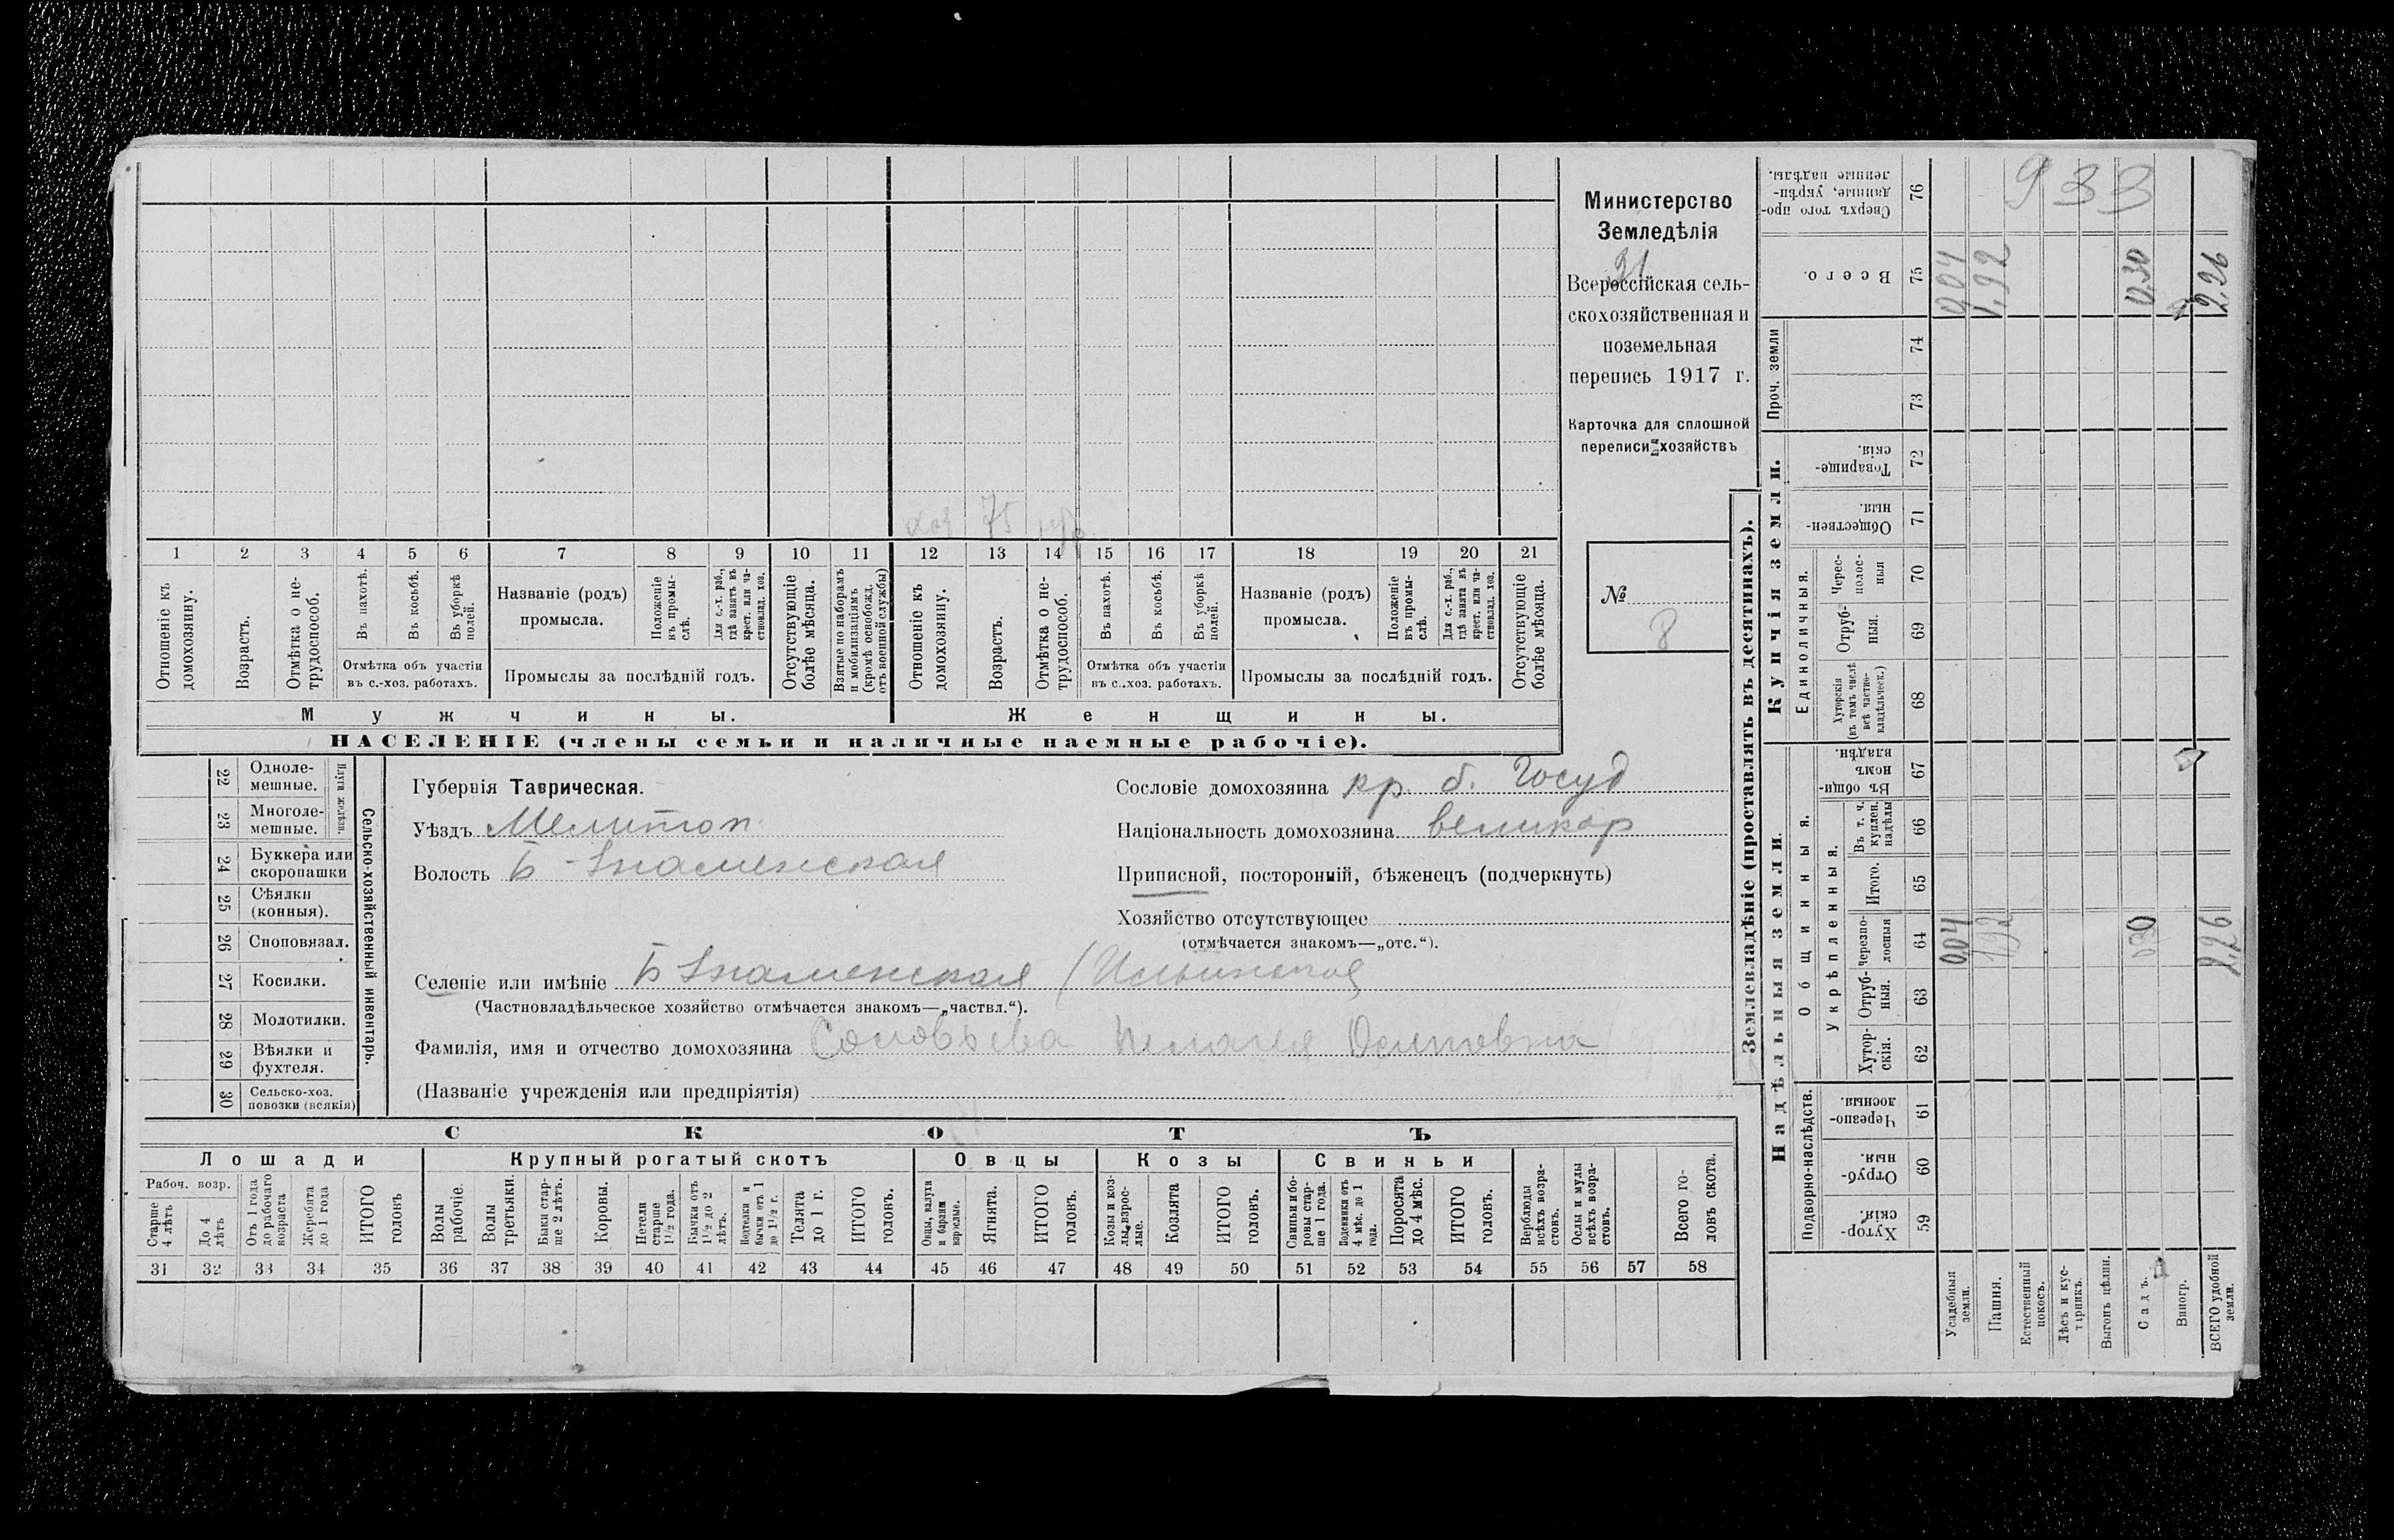 Министерство
Земледѣлія
31
Всероссійская сель-
скохозяйственная и
поземельная
перепись 1917 г.
Карточка для сплошной
переписи хозяйствъ
№
8
75
1 2 3 4 5 6 7 8 9 10 11 12 13 14 15 16 17 18 19 20 21
Отношеніе къ домохозяину.
Возрастъ.
Отмѣтка о не-трудоспособ.
Въ пахотѣ.
Въ косьбѣ.
Въ уборкѣ полей.
Отмѣтка объ участіи
въ с.-хоз. работахъ.
Названіе (родъ)
промысла.
Положеніе въ промы-слѣ.
Для с.-х. раб., гдѣ занятъ въ крест. или ча-стновлад. хоз.
Промыслы за послѣдній годъ.
Отсутствующіе болѣе мѣсяца.
Взятые по наборамъ и мобилизаціямъ (кромѣ освобожд. отъ военной службы)
Отношеніе къ домохозяину.
Возрастъ.
Отмѣтка о не-трудоспособ.
Въ пахотѣ.
Въ косьбѣ.
Въ уборкѣ полей.
Отмѣтка объ участіи
въ с.-хоз. работахъ.
Названіе (родъ)
промысла.
Положеніе въ промы-слѣ.
Для с.-х. раб., гдѣ занята въ крест. или ча-стновлад. хоз.
Промыслы за послѣдній годъ.
Отсутствующіе болѣе мѣсяца.
Мужчины.
Женщины.
НАСЕЛЕНІЕ (члены семьи и наличные наемные рабочіе).
22 Одноле-мешные.
23 Многоле-мешные.
Плуги желѣзн.
24 Буккера или скоропашки
25 Сѣялки (конныя).
26 Сноповязал.
27 Косилки.
28 Молотилки.
29 Вѣялки и фухтеля.
30 Сельско-хоз. повозки (всякія)
Сельско-хозяйственный инвентарь.
Губернія Таврическая.
Уѣздъ Мелитоп.
Волость Б-Знаменская
Сословіе домохозяина кр. б. Госуд
Національность домохозяина великор
Приписной, посторонній, бѣженецъ (подчеркнуть)
Хозяйство отсутствующее
(отмѣчается знакомъ—„отс.“).
Селеніе или имѣніе Б Знаменская (Ильинская
(Частновладѣльческое хозяйство отмѣчается знакомъ—„частвл.“).
Фамилія, имя и отчество домохозяина Соловьева Пелагея Осиповна
(Названіе учрежденія или предпріятія)
СКОТЪ
Лошади
Крупный рогатый скотъ
Овцы
Козы
Свиньи
Рабоч. возр.
Старше 4 лѣтъ
До 4 лѣтъ
Отъ 1 года до рабочаго возраста
Жеребята до 1 года
ИТОГО головъ
Волы рабочіе.
Волы третьяки.
Быки стар-ше 2 лѣтъ.
Коровы.
Нетели старше 1½ года.
Бычки отъ 1½ до 2 лѣтъ.
Подтелки и бычки отъ 1 до 1½ г.
Телята до 1 г.
ИТОГО головъ.
Овцы, валухи и бараны взрослые.
Ягнята.
ИТОГО головъ.
Козы и коз-лы, взрос-лые.
Козлята
ИТОГО головъ.
Свиньи и бо-ровы стар-ше 1 года.
Подсвинки отъ 4 мѣс. до 1 года.
Поросята до 4 мѣс.
ИТОГО головъ.
Верблюды всѣхъ возра-стовъ.
Ослы и мулы всѣхъ возра-стовъ.
Всего го-ловъ скота.
31 32 33 34 35 36 37 38 39 40 41 42 43 44 45 46 47 48 49 50 51 52 53 54 55 56 57 58
Землевладѣніе (проставлять въ десятинахъ).
Купчія земли.
Надѣльныя земли.
Сверхъ того про-данные, укрѣп-ленные надѣлы.
76
933
Всего.
75
0,04
1,92
0,30
2,26
Проч. земли
74
73
Товарище-скія.
72
Обществен-ныя.
71
Единоличныя.
Черес-полос-ныя
70
Отруб-ныя.
69
Хуторскія (въ томъ числѣ всѣ частно-владѣльческ.)
68
Общинныя.
Въ общи-номъ владѣн.
67
Укрѣпленныя.
Въ т. ч. куплен. надѣлы
66
Итого.
65
Черезпо-лосныя
64
0,04
1,92
0,30
2,26
Отруб-ныя.
63
Хутор-скія.
62
Подворно-наслѣдств.
Черезпо-лосныя.
61
Отруб-ныя.
60
Хутор-скія.
59
Усадебныя земли.
Пашня.
Естественный покосъ.
Лѣсъ и кус-тарникъ.
Выгонъ цѣлин.
Садъ.
Виногр.
ВСЕГО удобной земли.